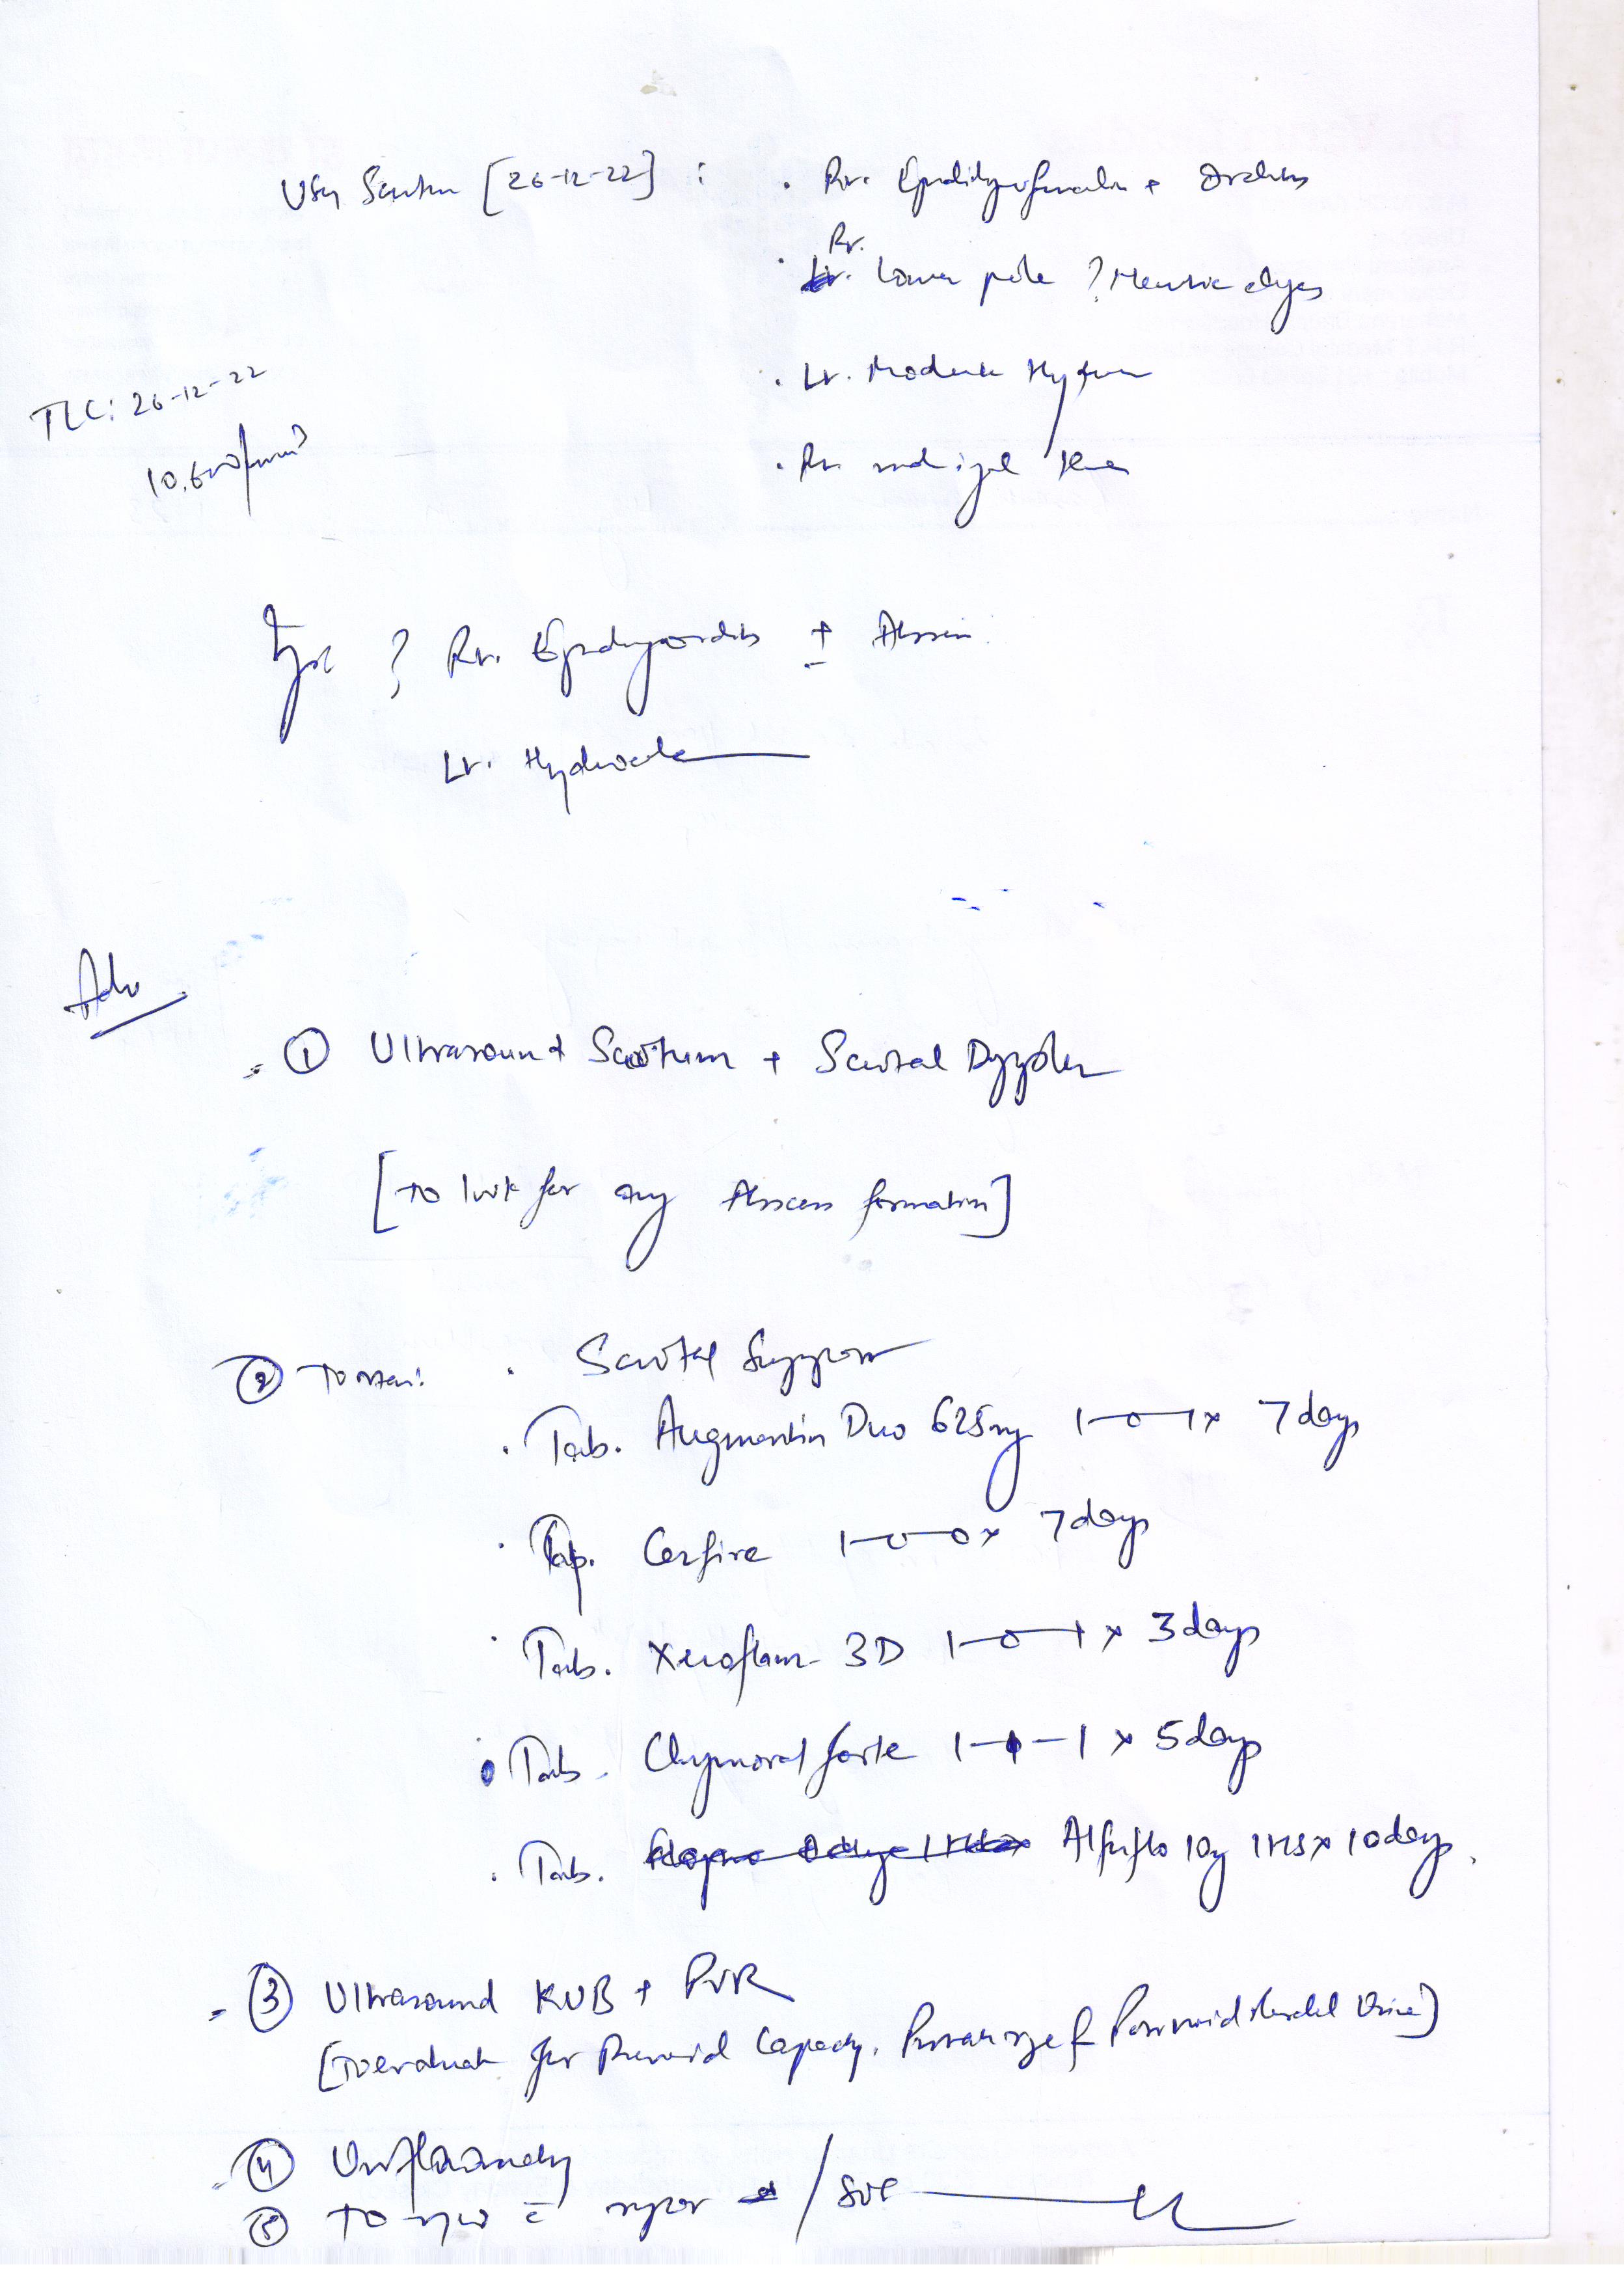 USG Scrotum [26-12-22] : . Rt. + Orchitis
Rt.
. Lower pole ?
. Lt. Moderate
TLC: 26-12-22
. Rt.
10,600/mm3
? Rt. Epididymoorchitis ± Abscess
Lt. Hydrocele
Adv
① Ultrasound Scrotum + Scrotal Doppler
[To look for any Abscess formation]
② To start: . Scrotal Support
. Tab. Augmentin Duo 625mg 1-0-1 x 7 days
. Cap. 1-0-0 x 7 days
. Tab. 3D 1-0-1 x 3 days
. Tab. Chymoral forte 1-1-1 x 5 days
. Tab. Alfuflo 10mg 1 HS x 10 days.
③ Ultrasound KUB + PVR
[To evaluate for Prevoid Capacity, Prostate size & Postvoid Residual Urine]
④ Uroflowmetry
⑤ To c̄ report / SOS